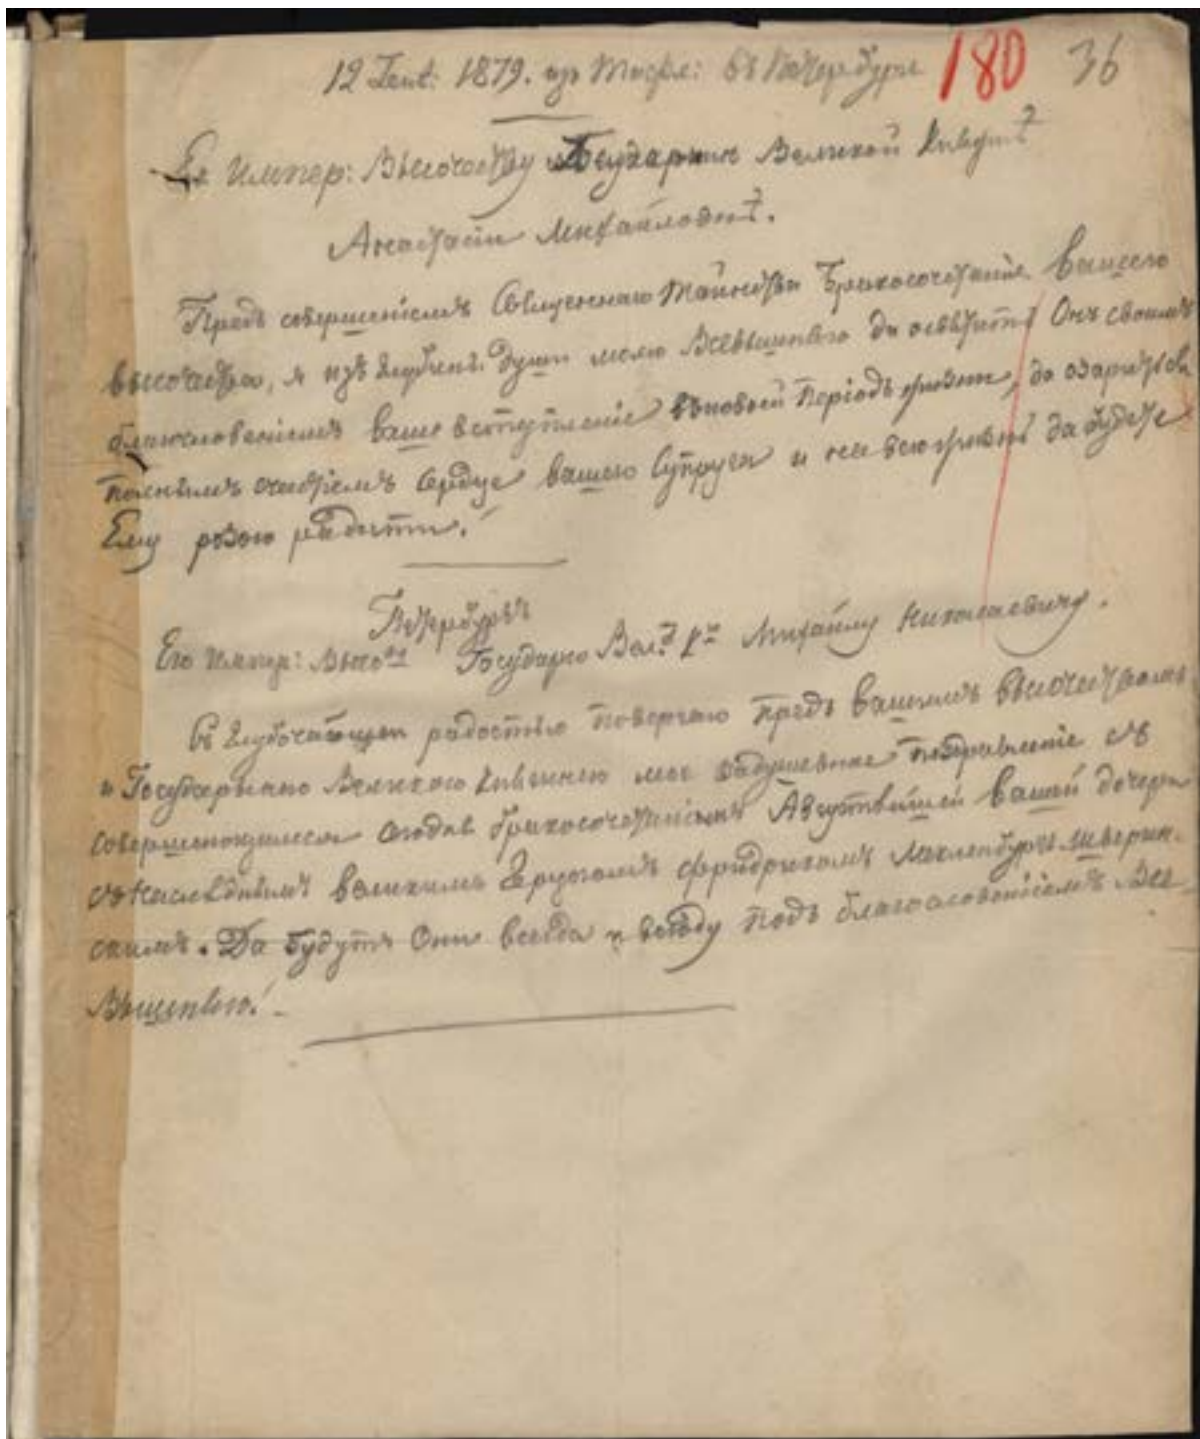 12 Генв: 1879. изъ Тифл: въ Петербургъ 180 36
Ея Импер: Высочеству Государынѣ Великой Княгинѣ
Анастасіи Михайловнѣ.
Предъ совершеніемъ Священнаго Таинства Бракосочетанія Вашего
Высочества, я изъ глубины души молю Всевышняго да освѣтитъ Онъ своимъ
благословеніемъ ваше вступленіе въ новый періодъ жизни, да озарится
полнымъ счастіемъ сердце вашего Супруга и на всю жизнь да будете
Ему розою радости!
Петербургъ
Его Импер: Высоч Государю Вел. Кн Михаилу Николаевичу.
Съ глубочайшею радостью повергаю предъ Вашимъ Высочествомъ
и Государынею Великою Княгинею мое задушевное поздравленіе съ
совершающимся сегодня бракосочетаніемъ Августѣйшей вашей дочери
съ Наслѣднымъ Великимъ Герцогомъ Фридрихомъ Мекленбургъ-Шверин-
скимъ. Да будутъ Они всегда и всюду подъ благословеніемъ Все-
вышняго!